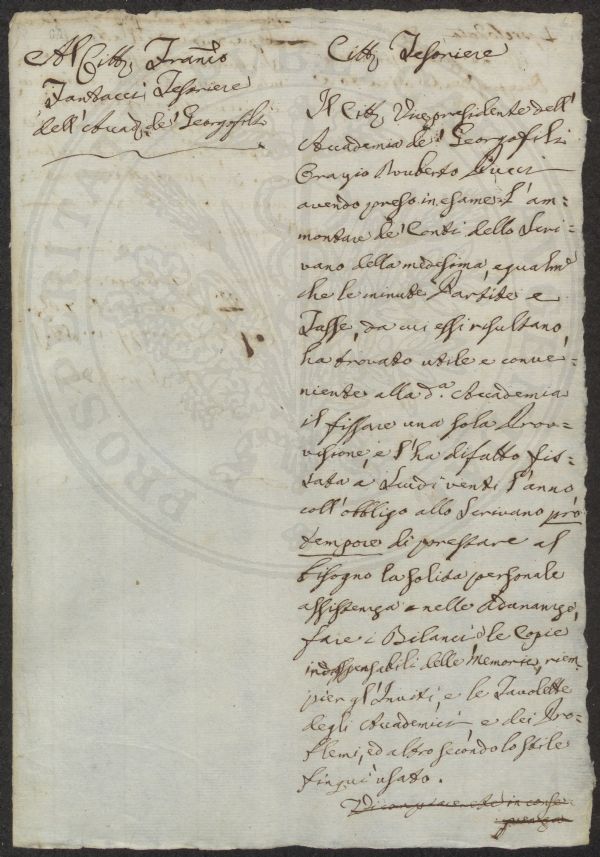 Al Citt. Franc.o
Fantacci Tesoriere
dell'Accad. de' Georgofili
Citt. Tesoriere
Il Citt. Vicepresidente dell'
Accademia de' Georgofili
Orazio Ruberto Pucci
avendo preso in esame l'am=
montare de' Conti dello Scri=
vano della medesima, egualm.e
che le minute Partite e
Tasse, da cui essi risultano,
ha trovato utile e conve=
niente alla d.a Accademia
il fissare una sola Prov=
visione, e l'ha difatto fis=
sata a Scudi venti l'anno
coll'obbligo allo Scrivano pro
tempore di prestare al
bisogno la solita personale
assistenza nelle Adunanze,
fare i Bilanci, le Copie
indispensabili delle Memorie, riem=
pier gl'Inviti, e le Tavolette
degli Accademici, e dei Pro=
blemi, ed altro secondo lo stile
finqui usato.
in conse=
guenza
PROSPERITA